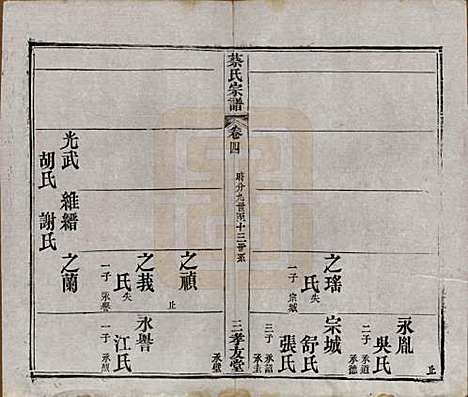 永胤
吳氏
二子 承道
承德
止
宗城
舒氏
張氏
三子 承詔
承圭
之瑤
氏失
一子 宗城
蔡氏宗譜
卷四
房分九世至十三世系
三孝友堂
承璧
之禎
止
之莪
氏失
一子 永譽
永譽
江氏
一子 承烈
之蘭
維縉
謝氏
光武
胡氏